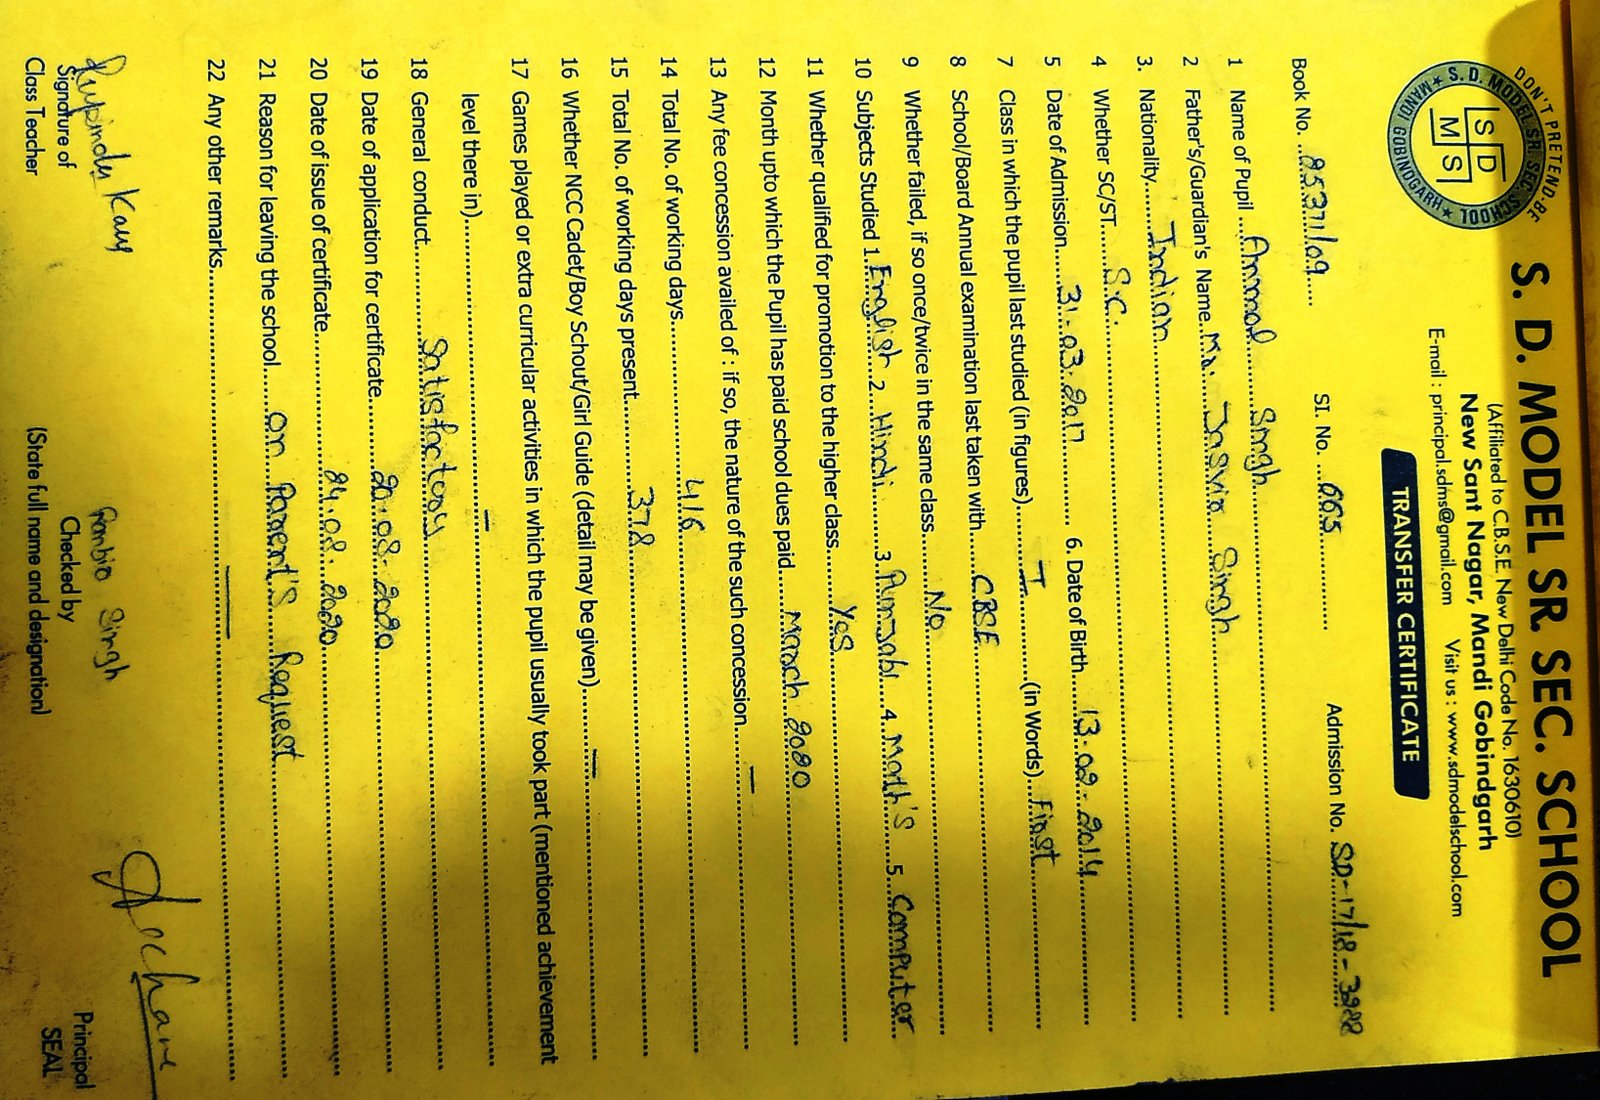 DON'T PRETEND-BE
S. D. MODEL SR. SEC. SCHOOL
★ MANDI GOBINDGARH ★
S D
M S
S. D. MODEL SR. SEC. SCHOOL
(Affiliated to C.B.S.E. New Delhi Code No. 1630610)
New Sant Nagar, Mandi Gobindgarh
E-mail : principal.sdms@gmail.com Visit us : www.sdmodelschool.com
TRANSFER CERTIFICATE
Book No. ...2537/09..... SI. No. ...665............ Admission No. SD-17/18-3988
1 Name of Pupil ...Anmol.......Singh
2 Father's/Guardian's Name..Mr. Jasvir Singh
3. Nationality........Indian
4 Whether SC/ST.....S.C.
5 Date of Admission.....31.03.2017............ 6. Date of Birth.....13.02.2014
7 Class in which the pupil last studied (in figures).......I...............(in Words)...First
8 School/Board Annual examination last taken with.....CBSE
9 Whether failed, if so once/twice in the same class........No
10 Subjects Studied 1.English..2. Hindi.......3.Punjabi....4.Math's.....5...Computer
11 Whether qualified for promotion to the higher class.......Yes
12 Month upto which the Pupil has paid school dues paid......March 2020
13 Any fee concession availed of : if so, the nature of the such concession....—
14 Total No. of working days......416
15 Total No. of working days present.........378
16 Whether NCC Cadet/Boy Schout/Girl Guide (detail may be given)........—
17 Games played or extra curricular activities in which the pupil usually took part (mentioned achievement
level there in)........—
18 General conduct.........Satisfactory
19 Date of application for certificate........20.08.2020
20 Date of issue of certificate........24.08.2020
21 Reason for leaving the school.....on Parent's Request
22 Any other remarks.......—
Rupinder Kaur Ranbir Singh Archana
Signature of Checked by Principal
Class Teacher (State full name and designation) SEAL